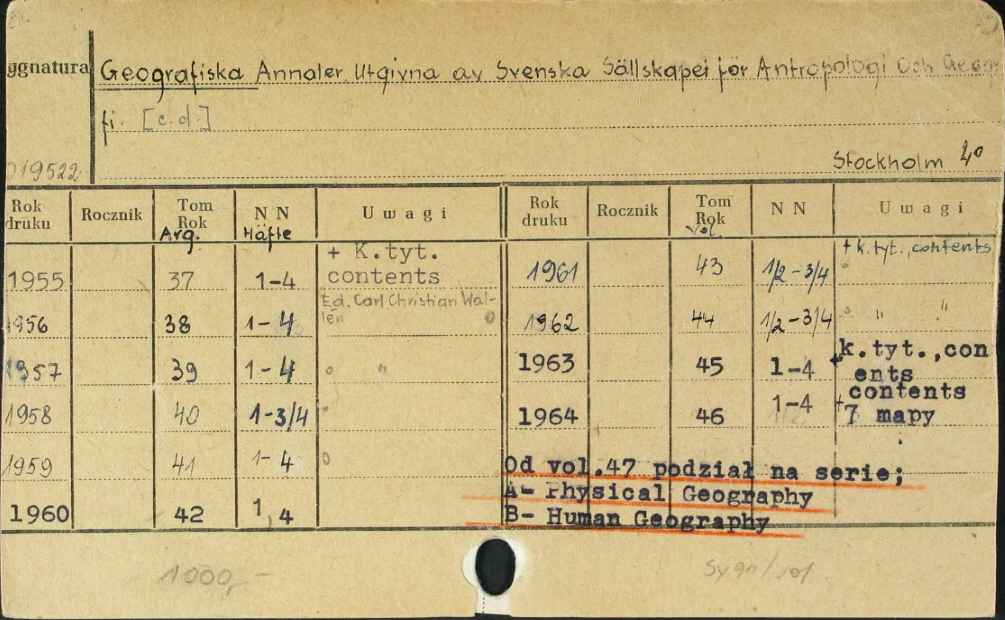 ygnatura Geografiska Annaler Utgivna av Svenska Sällskapei för Antropologi Och Geogr
fi. [c.d.]
019522
Stockholm 4°
Rok druku Rocznik Tom Rok N N Uwagi Rok druku Rocznik Tom Rok N N Uwagi
Arg. Häfte Vol.
1955 37 1-4 + K.tyt. contents 1961 43 1/2-3/4 + k.tyt., contents
Ed. Carl Christian Wal-
lén
1956 38 1-4 1962 44 1/2-3/4 " "
1957 39 1-4 " 1963 45 1-4 + k.tyt.,con
ents
1958 40 1-3/4 1964 46 1-4 + contents
7 mapy
1959 41 1-4 Od vol.47 podział na serie;
A- Physical Geography
1960 42 1,4 B- Human Geography
1000,-
Sygn/